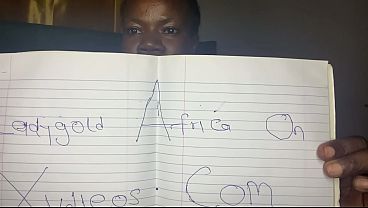 Ladygold Africa On
Xvideos. Com